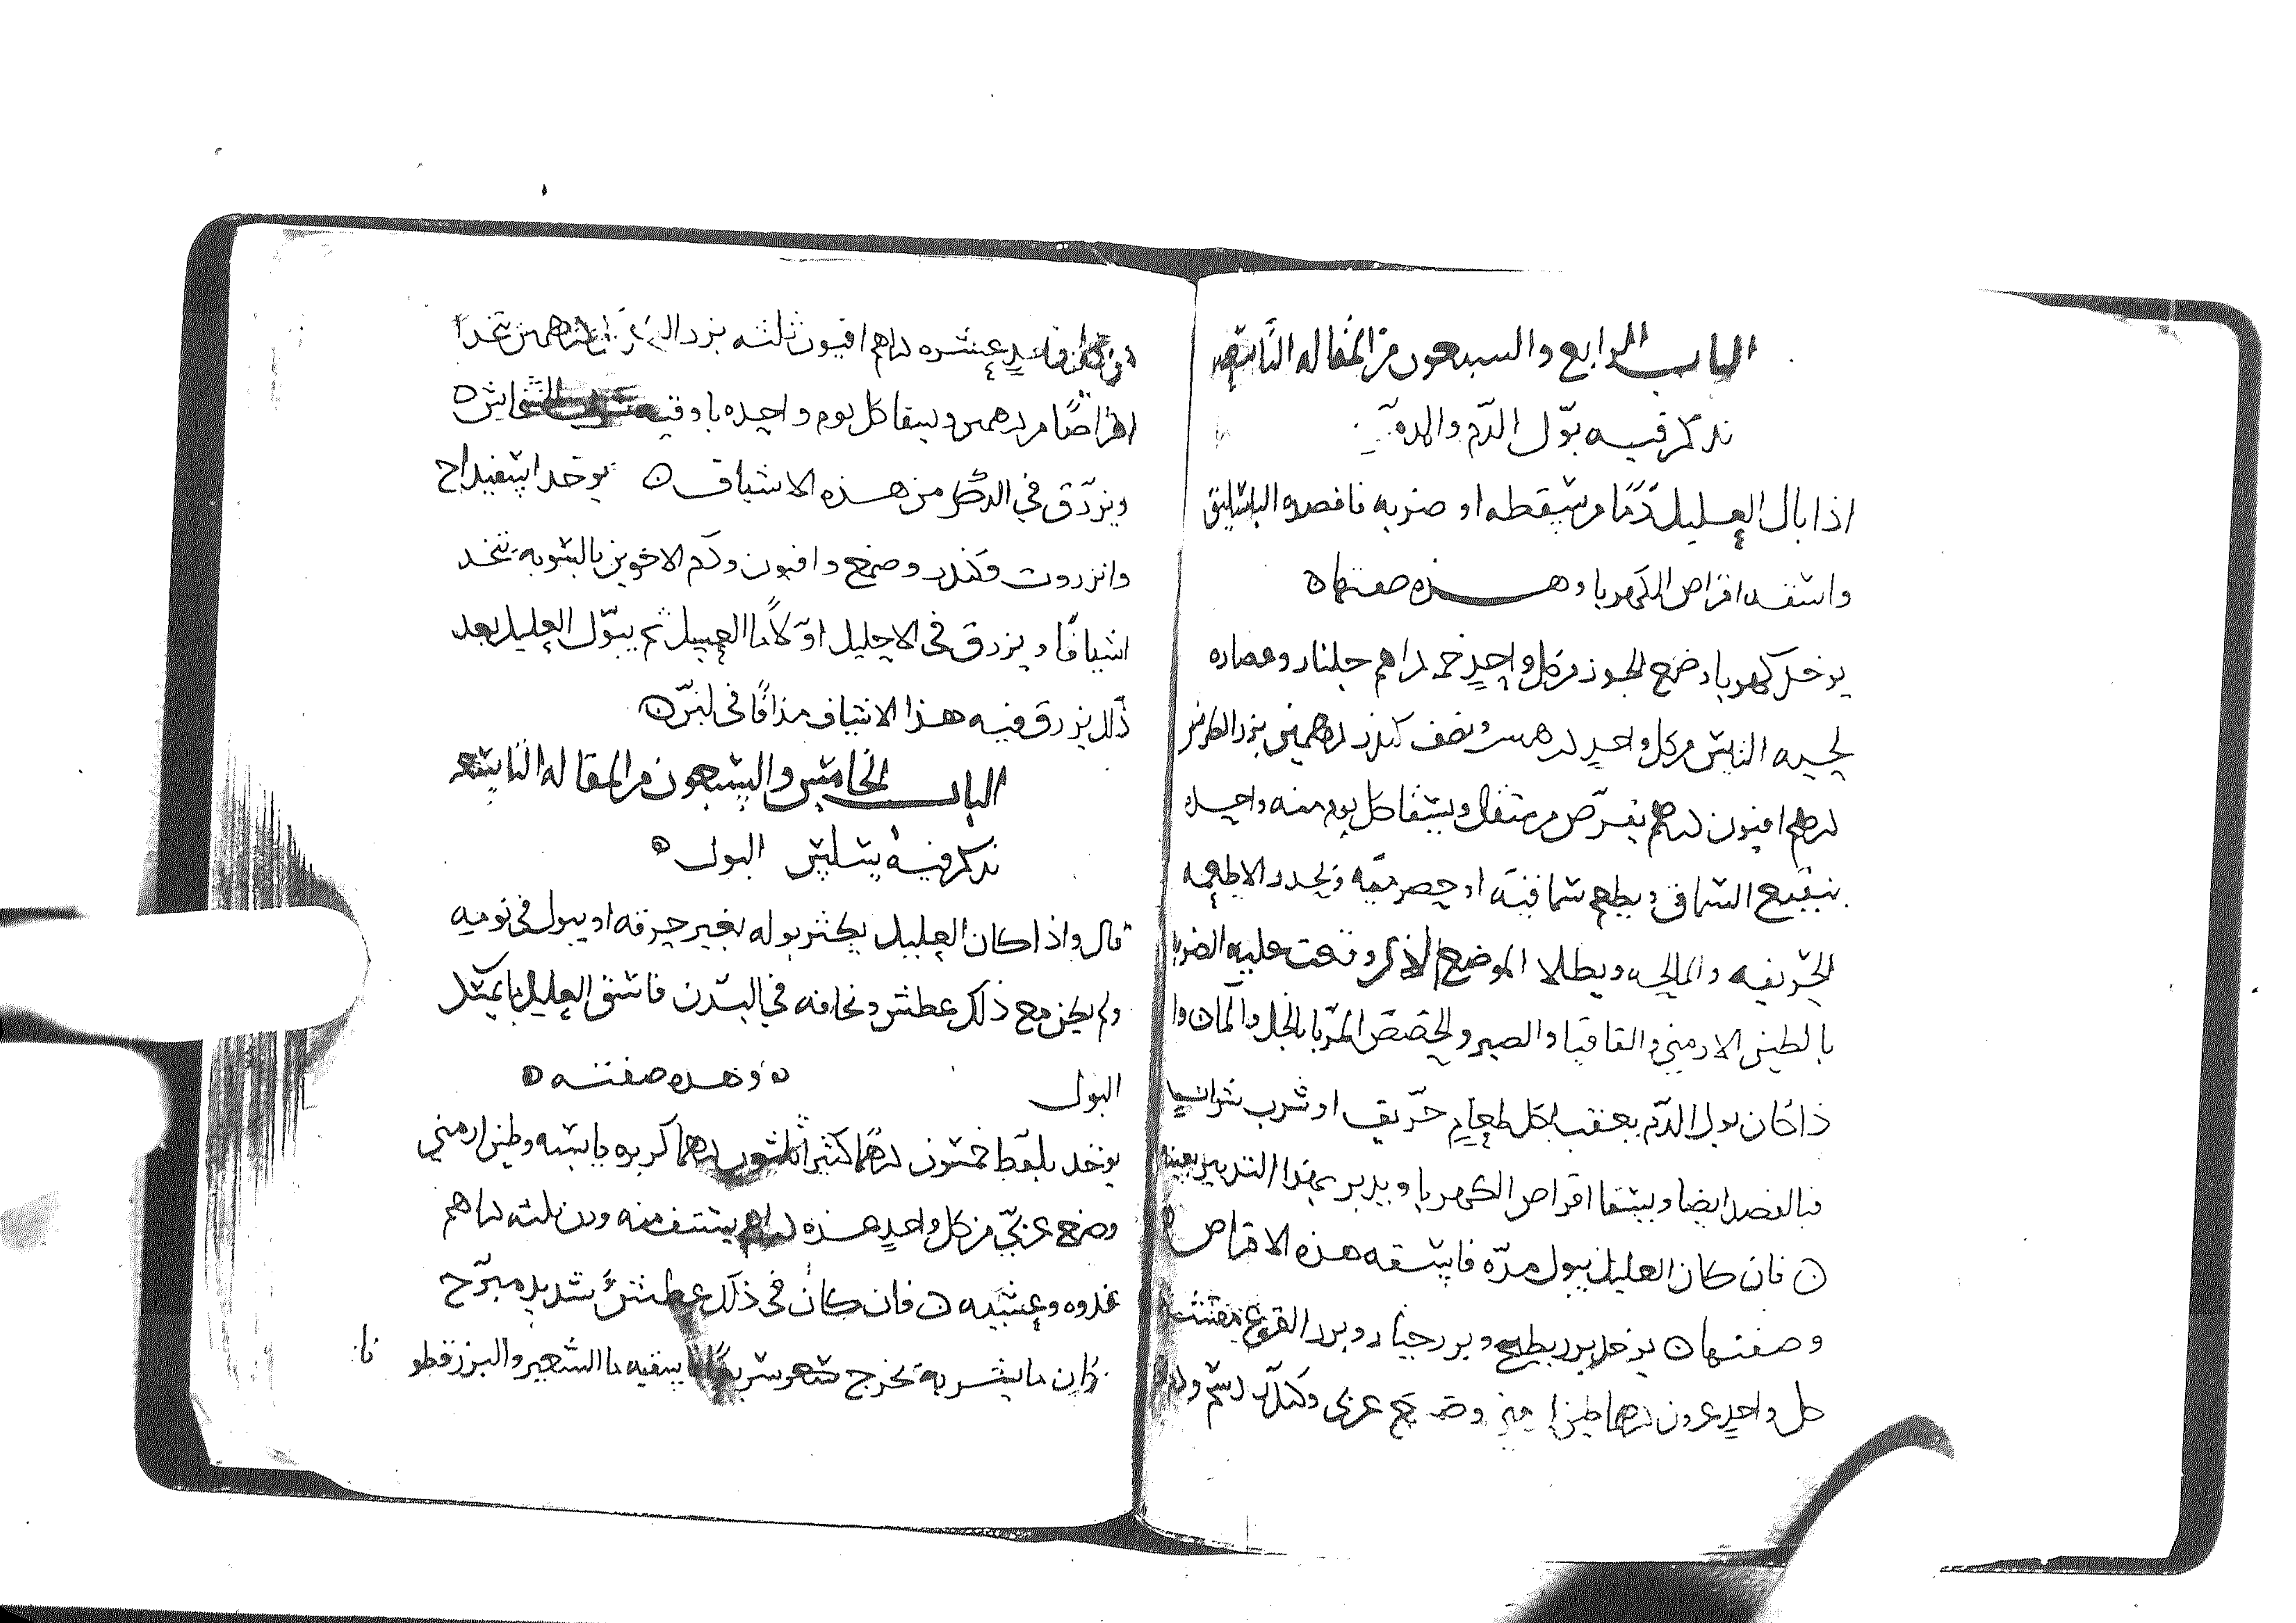 الباب الرابع والسبعون من المقاله التاسعه
نذكر فيه بول الدم والمده
اذا بال العليل دما من سقطه او ضربه فافصده الباسليق
واسقه اقراص الكهربا وهذه صفتها ه
يوخذ كهربا وصمغ الجوز من كل واحد خمسه دراهم جلنار وعصاره
لحيه التيس من كل واحد درهمين ونصف كندر درهمين بزر الكرفس
درهم افيون درهم يقرص من مثقال ويسقا كل يوم منه واحده
بنقيع السماق ويطعم سماقيه او حصرميه ويحذر الاطعمه
الحريفه والمالحه ويطلا الموضع الذي وقعت عليه الضربه
بالطين الارمني والقاقيا والصبر والحضض المربا بالخل والمان وا
ذا كان بول الدم بعقب اكل طعام حريف او شرب شراب
فبالفصد ايضا ويسقا اقراص الكهربا ويدبر بهذا التدبير بعينه
ه فان كان العليل يبول مده فاسقه هذه الاقراص ه
وصفتها ه يوخذ بزر بطيخ وبزر خيار وبزر القرع مقشر
كل واحد عشرون درهما طين ارمني وصمغ عربي وكندر ودم
من كل واحد عشره دراهم افيون ثلثه بزر الكرفس درهمين تتخذ
اقراصا من درهمين ويسقا كل يوم واحده باوقيه شراب الخشخاش ه
ويزرق في الذكر من هذه الاشياف ه يوخذ اسفيداج
وانزروت وكندر وصمغ وافيون ودم الاخوين بالسويه تتخذ
اشيافا ويزرق في الاحليل اولا ما العسل ثم يبول العليل بعد
ذلك يزرق فيه هذا الاشياف مذافا في لبن ه
الباب الخامس والسبعون من المقاله التاسعه
نذكر فيه سلس البول ه
قال واذا كان العليل يكثر بوله بغير حرقه او يبول في نومه
ولم يكن مع ذلك عطش ونحافه في البدن فاسق العليل ما يمسك
البول ه وهذه صفته ه
يوخذ بلوط خمسون درهما كندر ثلثون درهما كزبره يابسه وطين ارمني
وصمغ عربي من كل واحد عشره دراهم يستف منه وزن ثلثه دراهم
غدوه وعشيه ه فان كان في ذلك عطش شديد مبرح
وكان ما يشربه يخرج سريعا فاسقيه ما الشعير والبزر قطو
نا